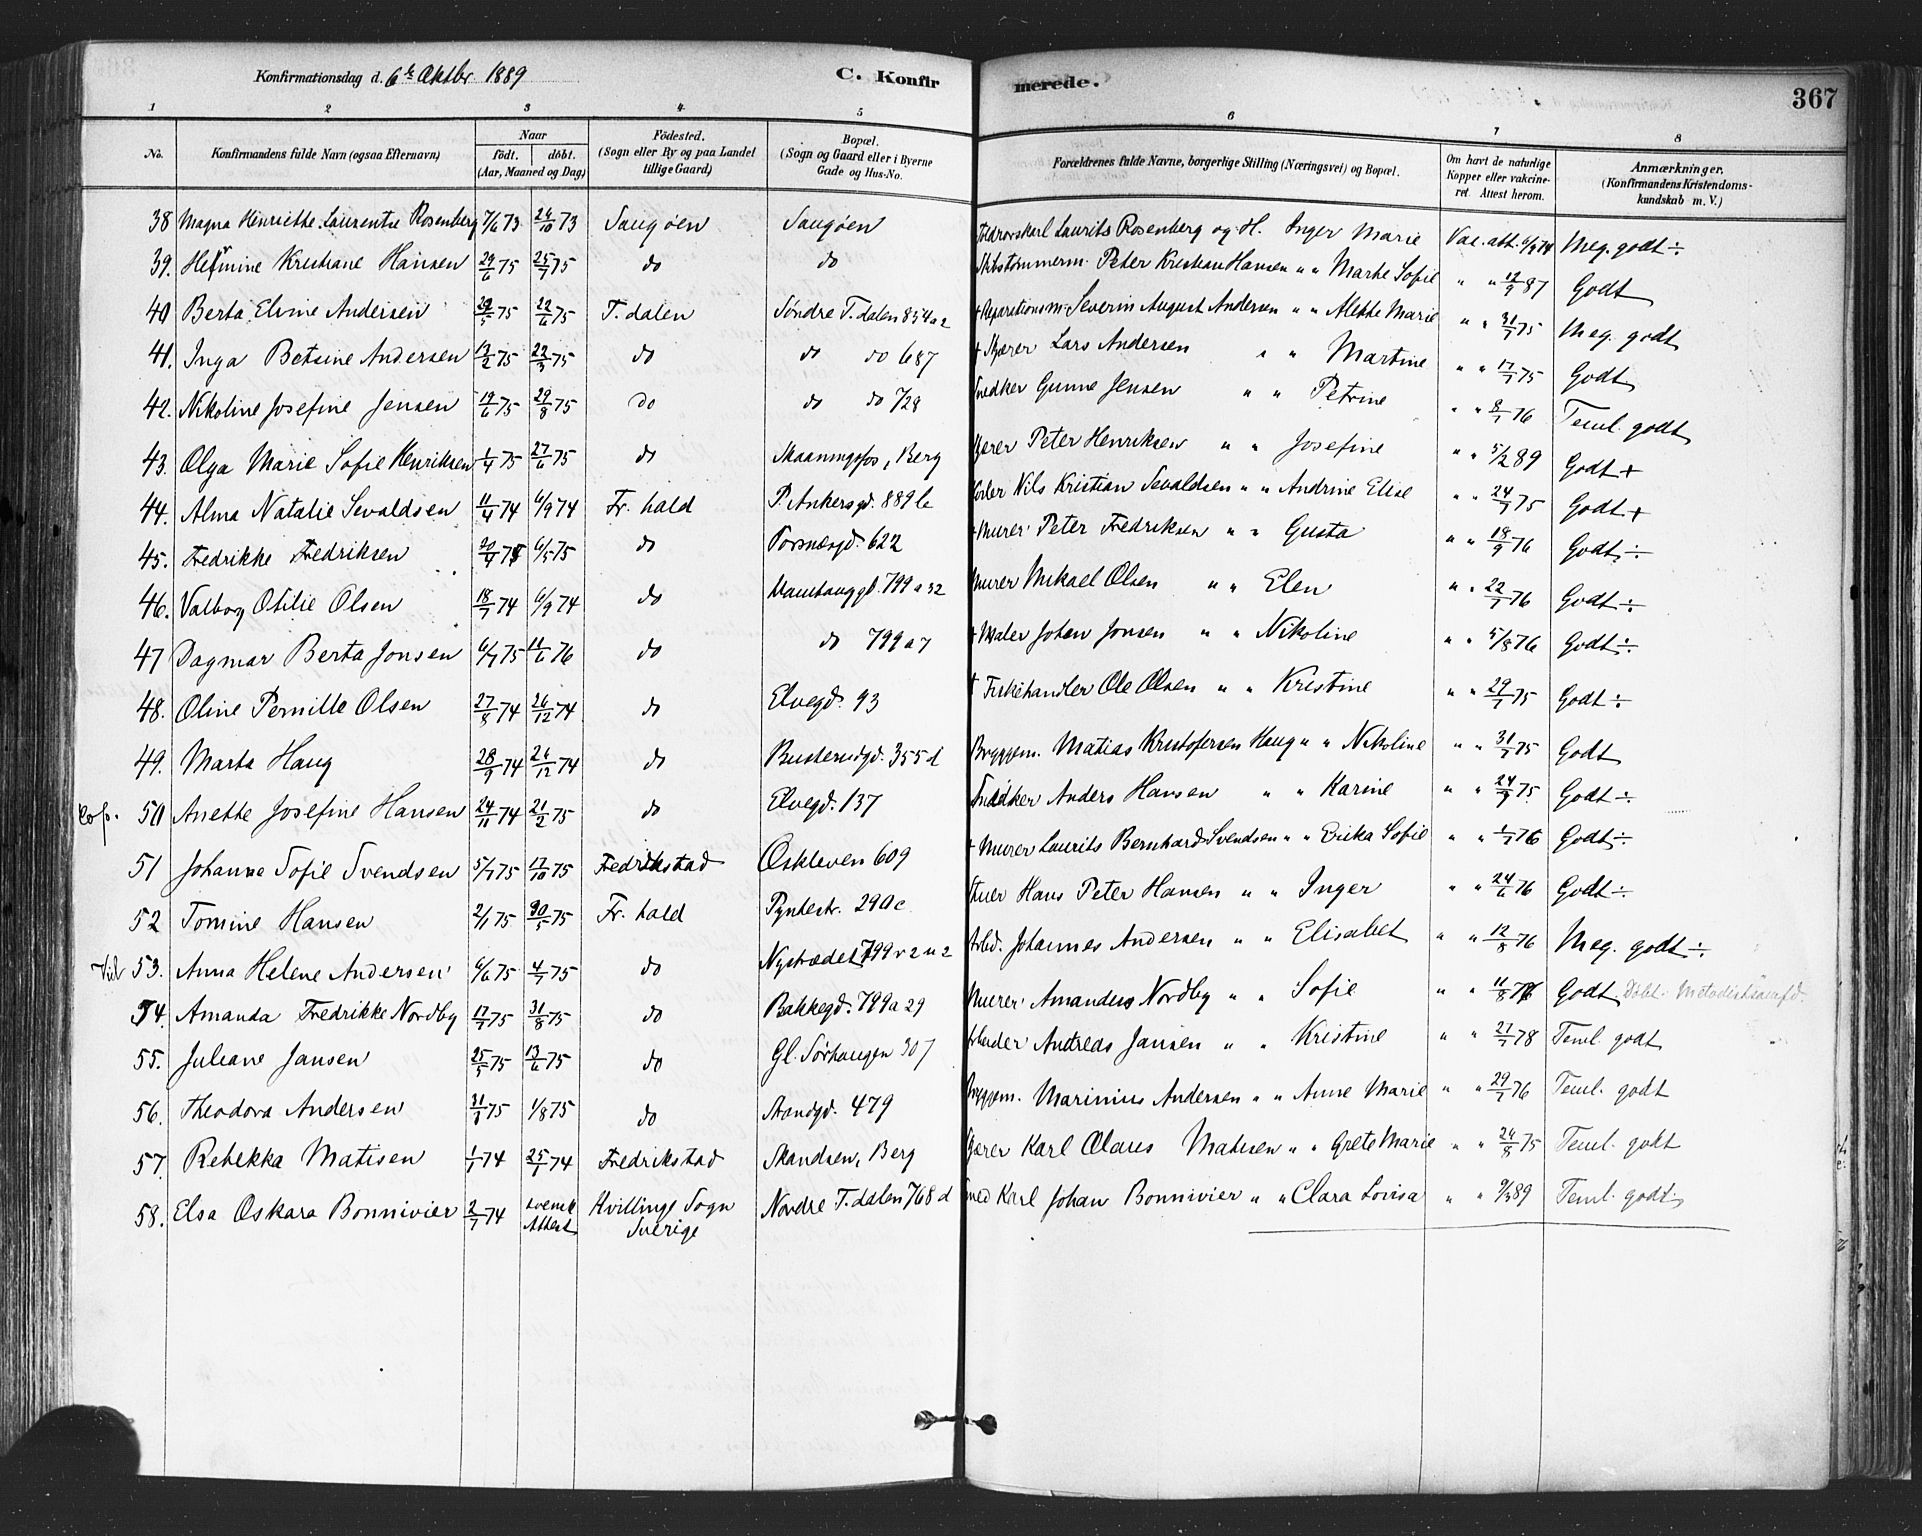 Konfirmationsdag d. 6te Oktbr 1889
C. Konfirmerede.
367
1 2 3 4 5 6 7 8
No.
Konfirmandens fulde Navn (ogsaa Efternavn)
Naar
födt. döbt.
(Aar, Maaned og Dag)
Födested.
(Sogn eller By og paa Landet
tillige Gaard)
Bopæl.
(Sogn og Gaard eller i Byerne
Gade og Hus-No.
Forældrenes fulde Navne, borgerlige Stilling (Næringsvei) og Bopæl.
Om havt de naturlige
Kopper eller vakcine-
ret. Attest herom.
Anmærkninger.
(Konfirmandens Kristendoms-
kundskab m. V.)
38 Magna Henriette Laurentse Rosenberg 7/6 73 26/10 73 Saugøen Saugøen Laurits Rosenberg og H. Inger Marie Vac. att. Meg. godt ÷
39. Hermine Kristiane Hansen 29/6 75 25/7 75 do do Skibstømmerm. Peter Kristian Hansen " " Marte Sofie " " 12/9 87 Godt
40 Berta Elvine Andersen 75 22/6 75 T. dalen Søndre T. dalen 854 a 2 + Reparationsm. Severin August Andersen " " Alette Marie " " 31/7 75 Meg. godt
41. Inga Betsine Andersen 12/2 75 75 do do do 687 + Skjærer Lars Andersen " " Martine " " 17/7 75 Godt
42. Nikoline Josefine Jensen 19/6 75 29/8 75 do do do 728 Snedker Gunne Jensen " " Petrine " " 8/7 76 Teml. godt
43. Olga Marie Sofie Henriksen 1/4 75 27/6 75 do Skaaningsfos, Berg Peter Henriksen " " Josefine " " 5/2 89 Godt +
44. Alma Natalie Sevaldsen 11/4 74 6/9 74 Fr. hald P. Ankersgd. 889 b Nils Kristian Sevaldsen " " Andrine Elise " " 24/7 75 Godt +
45. Fredrikke Fredriksen 6/5 75 do Torsnæsgd. 622 + Murer Peter Fredriksen " " Gusta " " 18/9 76 Godt ÷
46. Valborg Otilie Olsen 18/7 74 6/9 74 do 799 a 32 Murer Mikael Olsen " " Elen " " 22/7 76 Godt ÷
47 Dagmar Berta Jonsen 6/7 75 11/6 76 do do 799 a 7 + Maler Johan Jonsen " " Nikoline " " 5/8 76 Godt ÷
48. Oline Pernille Olsen 27/8 74 26/12 74 do Elvegd. 93 + Fiskehandler Ole Olsen " " Kristine " " 29/7 75 Godt ÷
49. Marta Haug 28/9 74 26/12 74 do Busterudgd. 355 d Bryggem. Matias Kristofersen Haug " " Nikoline " " 31/7 75 Godt
50 Anette Josefine Hansen 24/11 74 21/2 75 do Elvegd. 137 Snedker Anders Hansen " " Karine " " 75 Godt ÷
51 Johanne Sofie Svendsen 5/7 75 17/10 75 Fredrikstad Oskleven 609 + Murer Laurits Bernhard Svendsen " " Erika Sofie " " 1/7 76 Godt ÷
52 Tomine Hansen 2/1 75 30/5 75 Fr. hald Pyntestr. 290 c Hans Peter Hansen " " Inger " " 24/6 76 Godt ÷
53. Anna Helene Andersen 6/6 75 4/7 75 do Nystrædet 799 Arbd. Johannes Andersen " " Elisabet " " 12/8 76 Meg. godt ÷
54. Amanda Fredrikke Nordby 17/7 75 31/8 75 do Bakkegd. 799 a 29 Murer Amandus Nordby " " Sofie " " Godt Døbt. Metodistsamfd.
55. Juliane Jansen 25/5 75 13/6 75 do Gl. Sørhaugen 307 Arbeider Andreas Jansen " " Kristine " " 21/7 78 Teml. godt
56. Theodora Andersen 75 1/8 75 do Strandgd. 479 Bryggem. Marinius Andersen " " Anne Marie " " 29/7 76 Teml. godt
57. Rebekka Matisen 1/1 74 74 Fredrikstad Skandsen, Berg Karl Olaus Matisen " " Grete Marie " " 75 Teml. godt
58. Elsa Oskara Bonnivier 2/7 74 svensk Attest Hvillinge Sogn Sverige Nordre T. dalen 768 d Smed Karl Johan Bonnivier " " Clara Lovisa " " 9/3 89 Teml. godt